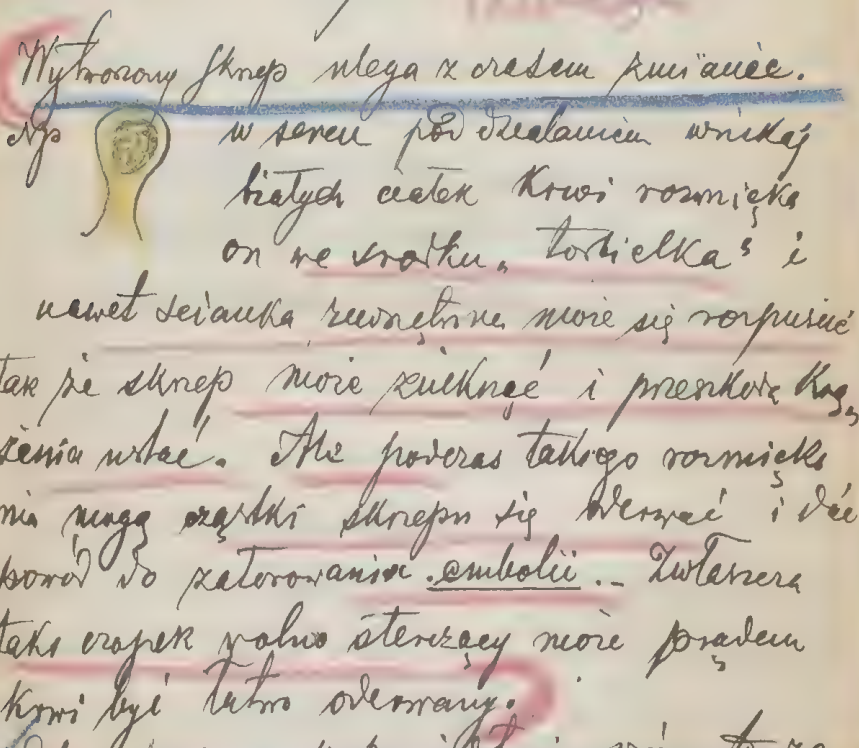 Wytworzony skrzep ulega z czasem zmianie.
Np w sercu pod działaniem wnikaj
białych ciałek krwi rozmięka
on we środku „torbielka” i
nawet ścianka zewnętrzna może się rozpuścić
tak że skrzep może zniknąć i przeszkoda krą„
żenia ustać. Ale podczas takiego rozmięka
nia mogą cząstki skrzepu się oderwać i dać
powód do zatorowania embolii. - Zwłaszcza
taki czopek wolno sterczący może prądem
krwi być łatwo oderwany.